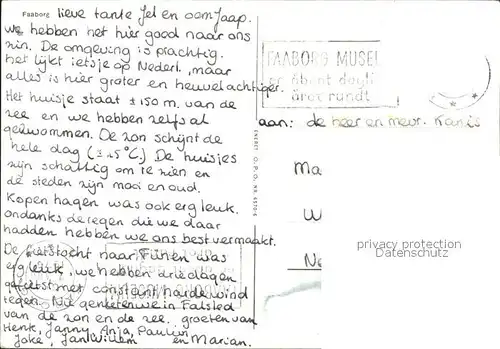 Faaborg
lieve tante Jel en oom Jaap.
we hebben het hier good naar ons
zin. De omgeving is prachtig.
het lijkt ietsje op Nederl., maar
alles is hier groter en heuvelachtiger.
Het huisje staat ± 150 m. van de
zee en we hebben zelfs al
gezwommen. De zon schijnt de
hele dag (± 25°C) De huisjes
zijn schattig om te zien en
de steden zijn mooi en oud.
Kopenhagen was ook erg leuk.
ondanks de regen die we daar
hadden hebben we ons best vermaakt.
De fietstocht naar Fünen was
erg leuk, we hebben drie dagen
gefietst met constant harde wind
tegen. Nu genieten we in Falsled
van de zon en de zee. groeten van
Henk, Janny, Anja, Paulien,
Joke, Jan Willem en Marian.
FAABORG MUSE
er åbent dagli
året rundt
aan: de heer en mevr.
Ma
W
Ne
ENERET O.P.O. NR.
privacy protection
Datenschutz